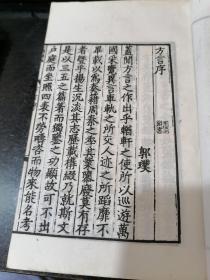 方言序
郭璞
蓋聞方言之作出乎輶軒之使所以巡遊萬
國采覽異言車軌之所交人迹之所蹈靡不
畢載以爲奏籍周秦之季其業隳廢莫有存
者曁乎揚生沈淡其志歷載構綴乃就斯文
是以三五之篇著而獨鑒之功顯故可不出
戶庭而坐照四表不勞疇咨而物來能名考